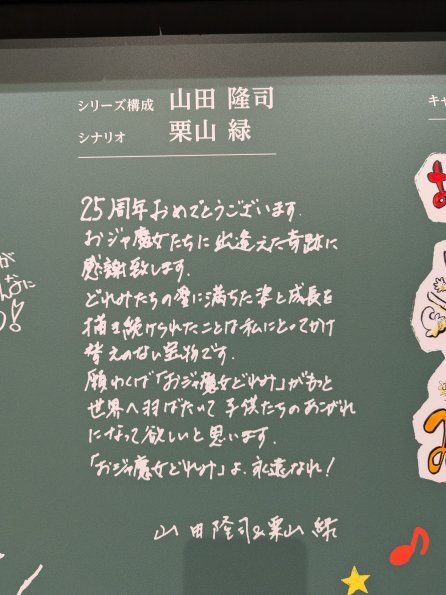 シリーズ構成 山田 隆司
シナリオ 栗山 緑
25周年おめでとうございます。
おジャ魔女たちに出逢えた奇跡に
感謝致します。
どれみたちの愛に満ちた姿と成長を
描き続けられたことは私にとってかけ
替えのない宝物です。
願わくば「おジャ魔女どれみ」がもっと
世界へ羽ばたいて子供たちのあこがれ
になって欲しいと思います。
「おジャ魔女どれみ」よ、永遠なれ!
山田隆司&栗山緑
キャ
が
んなに
!
お